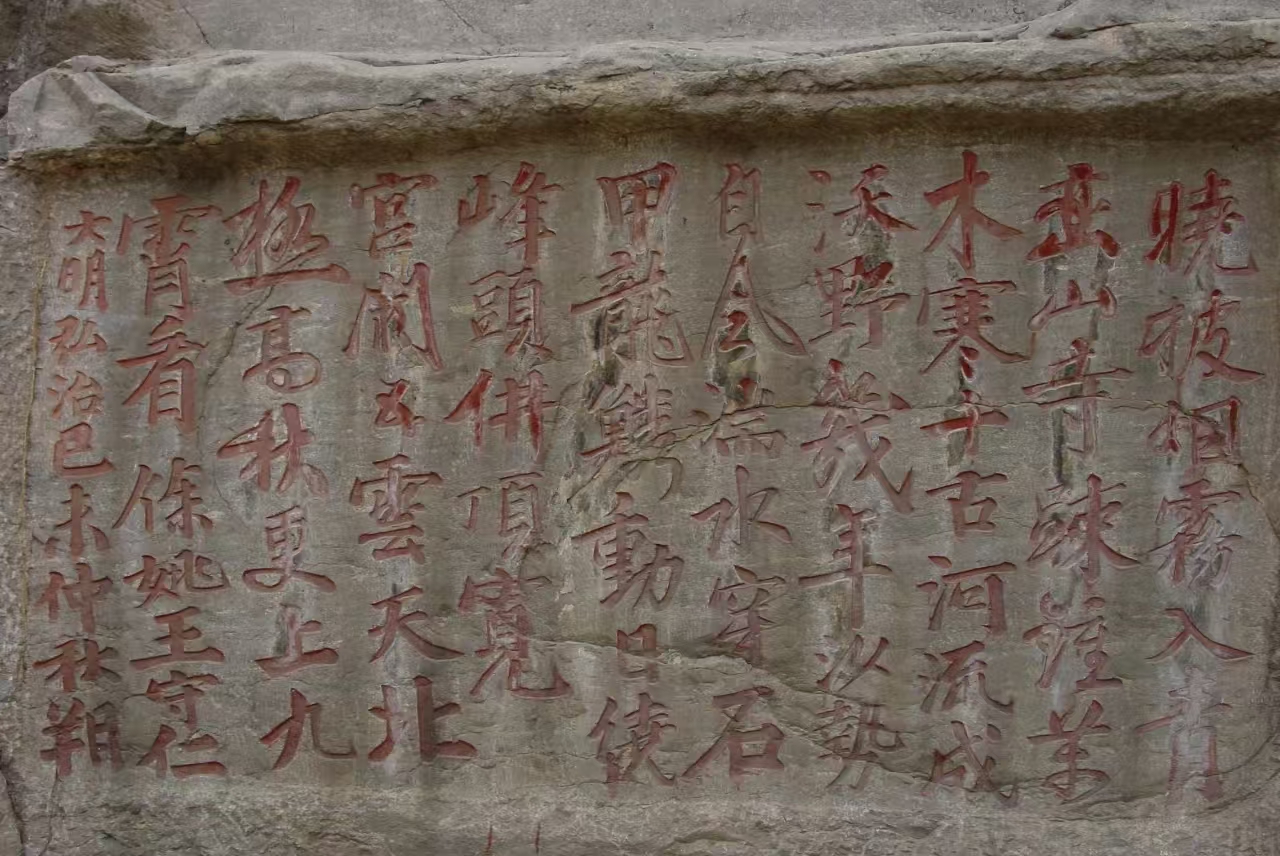 曉披烟霧入青
巒山寺疎鐘萬
木寒千古河流成
沃野幾年沙勢
自風湍水穿石
甲龍鱗動日繞
峰頭佛頂寬
宮闕五雲天北
極高秋更上九
霄看 餘姚王守仁
大明弘治己未仲秋朔